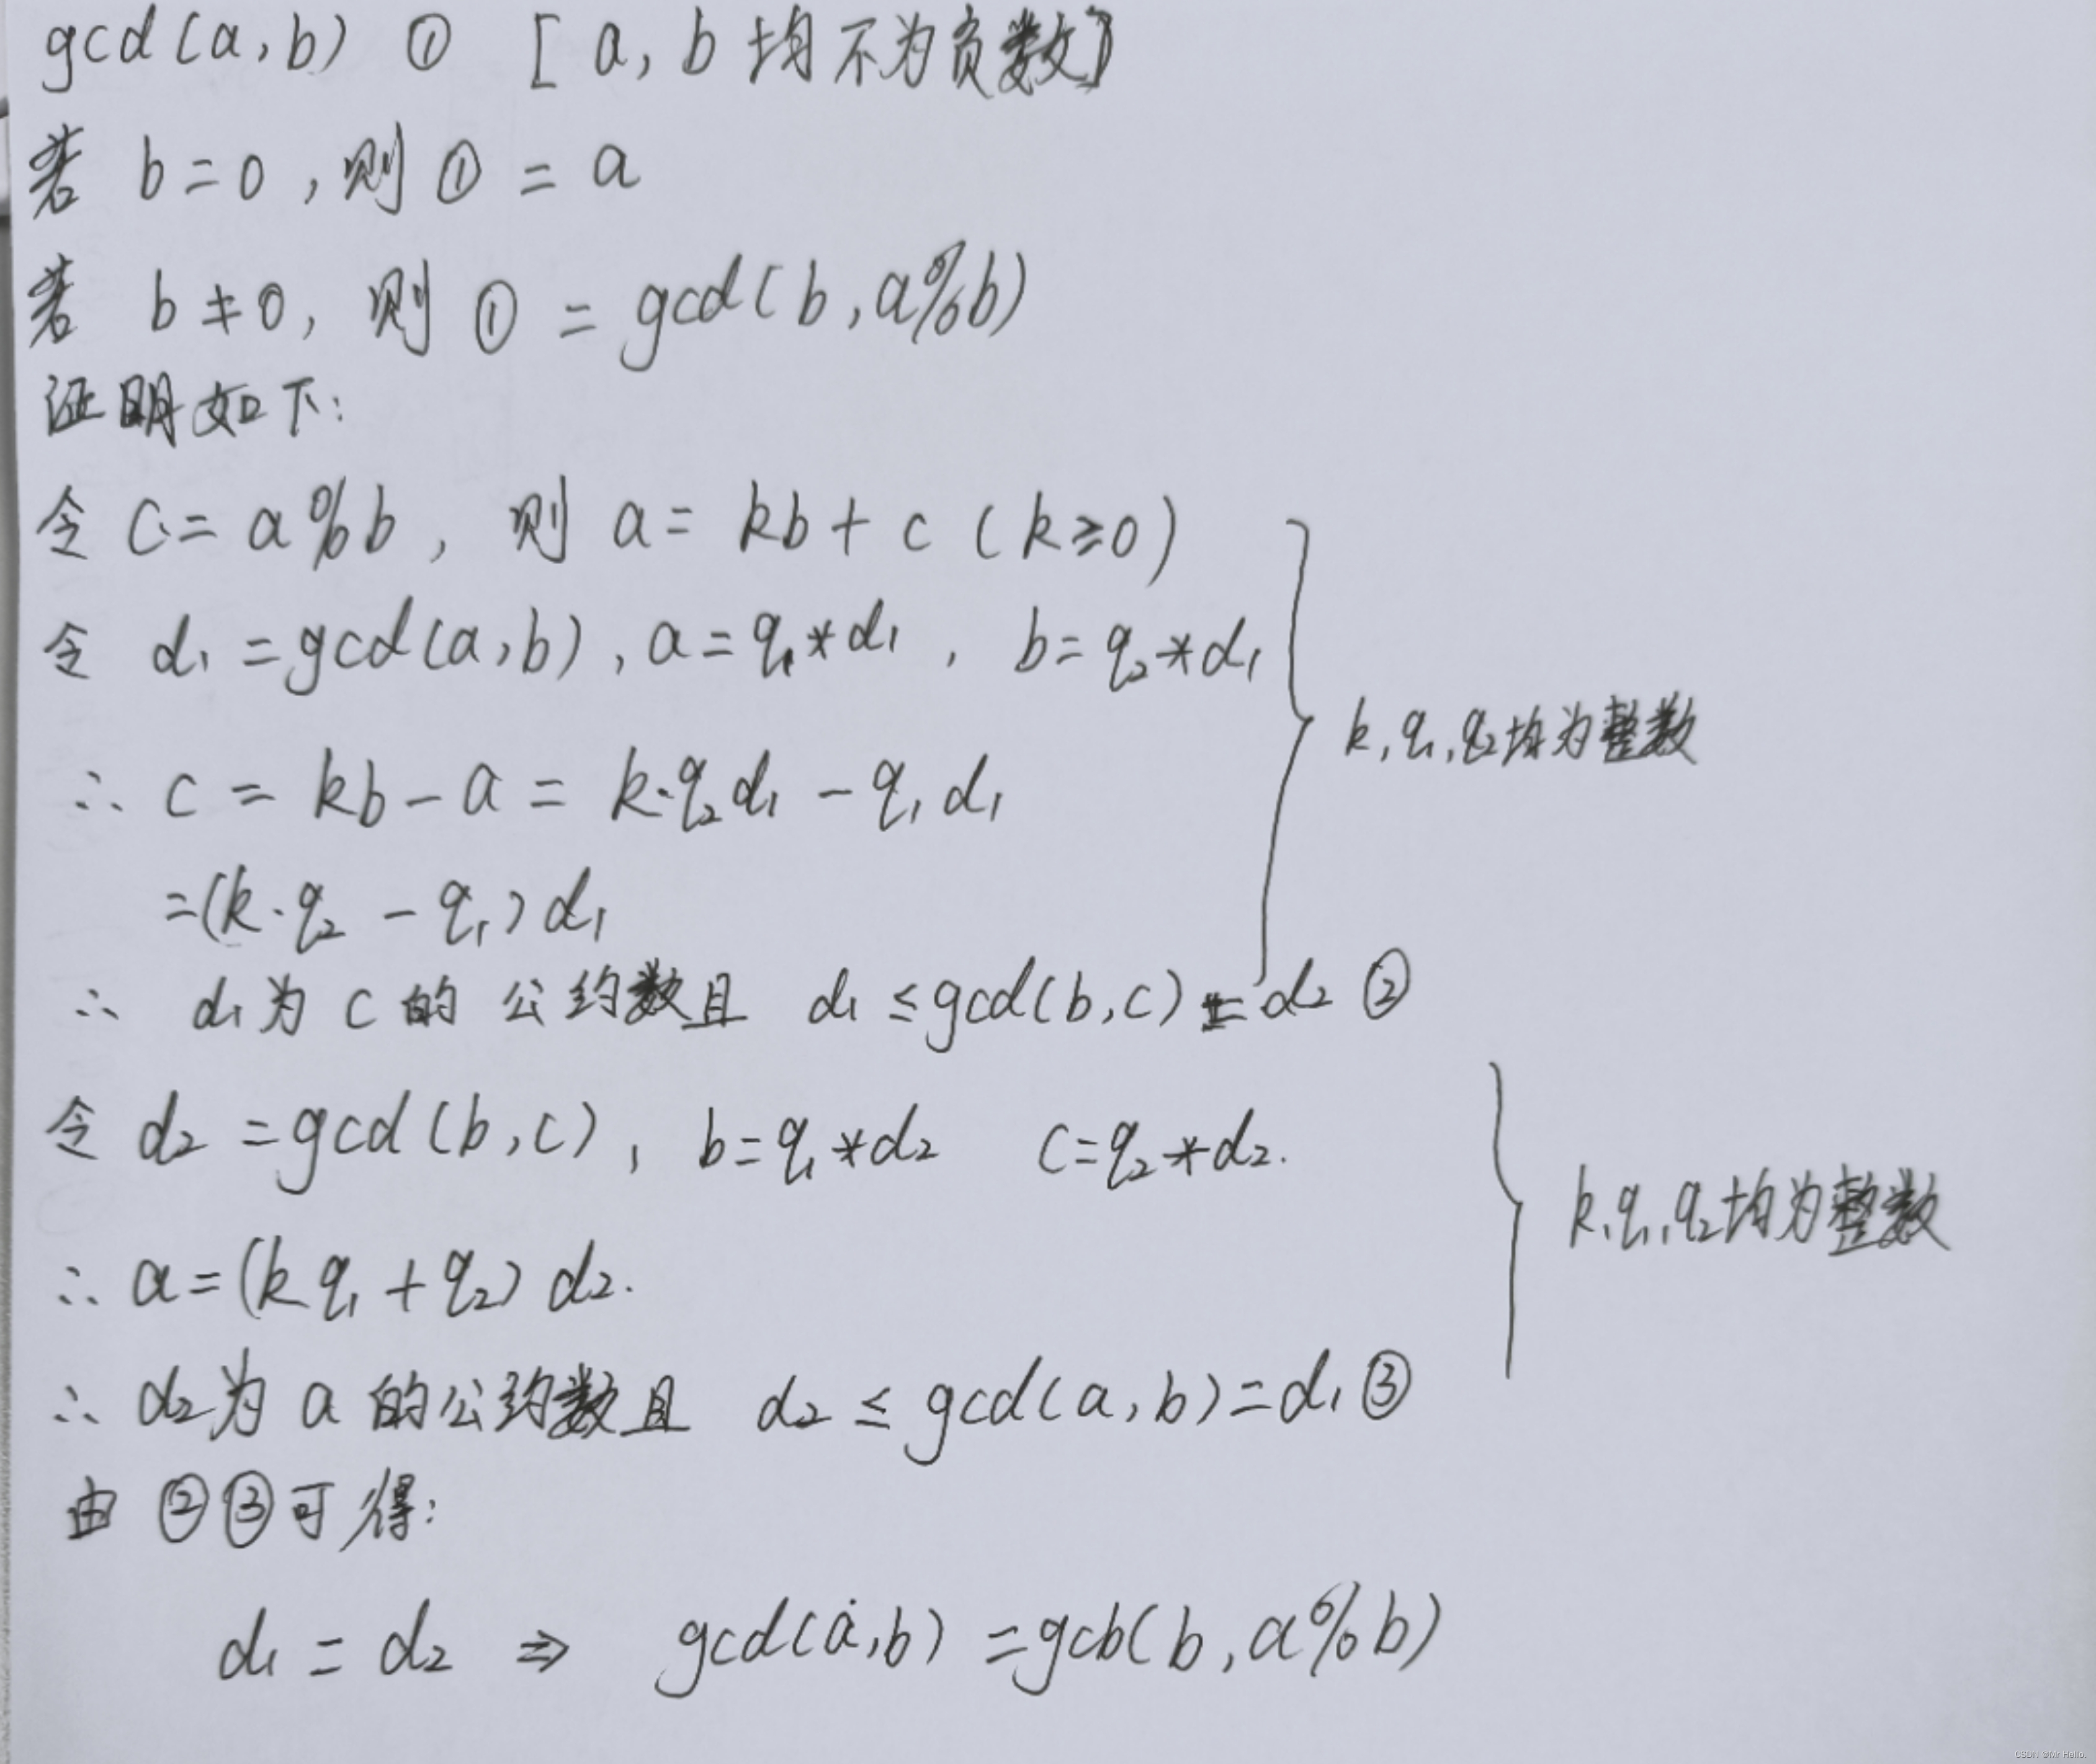 gcd(a,b) ① [a,b 均不为负数]
若 b=0,则 ① = a
若 b≠0,则 ① = gcd(b,a%b)
证明如下:
令 C=a%b,则 a=kb+c (k≥0)
令 d₁=gcd(a,b),a=q₁*d₁,b=q₂*d₁
∴ c=kb-a=k·q₂d₁-q₁d₁
k,q₁,q₂均为整数
=(k·q₂-q₁)d₁
∴ d₁为 c 的 公约数且 d₁≤gcd(b,c)=d₂ ②
令 d₂=gcd(b,c),b=q₁*d₂ c=q₂*d₂.
k,q₁,q₂均为整数
∴ a=(kq₁+q₂)d₂.
∴ d₂为 a 的公约数且 d₂≤gcd(a,b)=d₁③
由 ②③可得:
d₁=d₂ ⇒ gcd(a,b)=gcb(b,a%b)
CSDN @Mr Hello